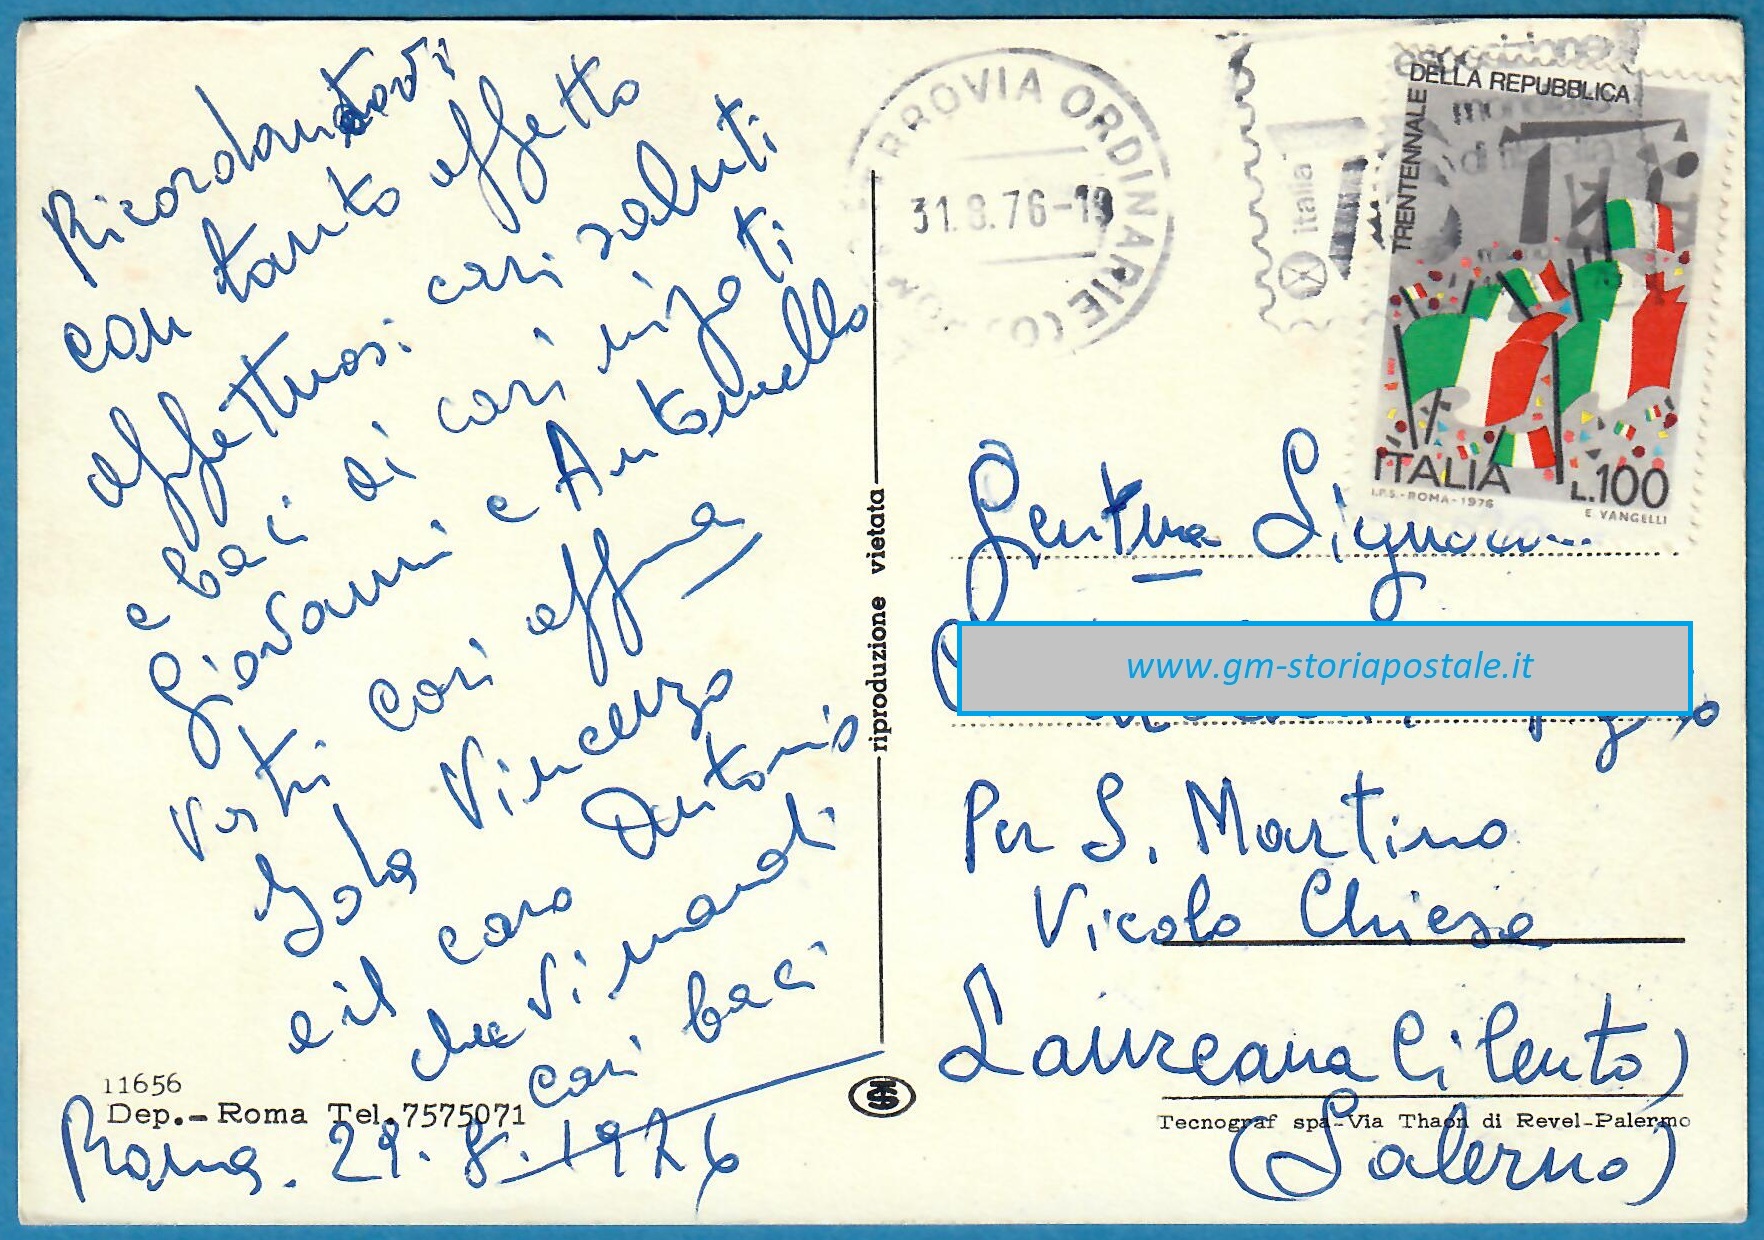 Ricordandovi
con tanto affetto
affettuosi cari saluti
e baci di cari nipoti
Giovanni e Antonella
Vostri cari aff.ma
Vincenzo
e il caro Antonio
che Vi manda
cari baci
11656
Dep.- Roma Tel. 7575071
Roma. 29.8.1976
riproduzione vietata
FERROVIA ORDINARIE
31.8.76-19
italia
TRENTENNALE DELLA REPUBBLICA
ITALIA L.100
I.P.S.-ROMA-1976 E VANGELLI
Gent.ma Signora
www.gm-storiapostale.it
Per S. Martino
Vicolo Chiesa
Laureana Cilento
(Salerno)
Tecnograf spa-Via Thaon di Revel-Palermo